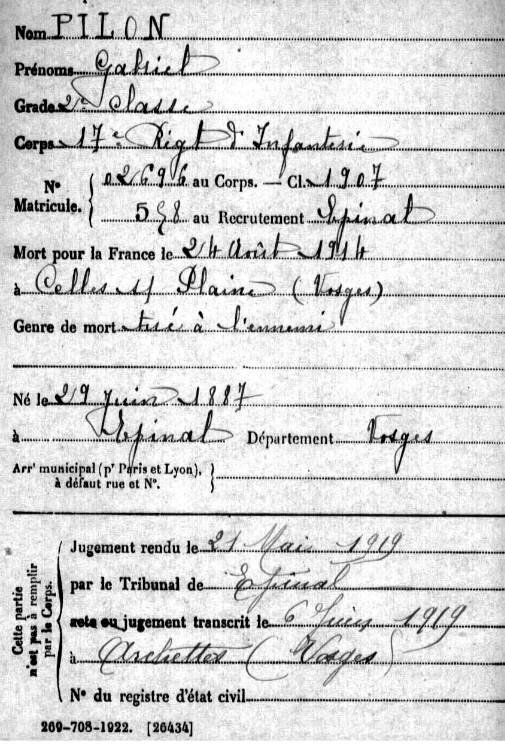 Nom PILON
Prénoms Gabriel
Grade 2e classe
Corps 17e Régt d'Infanterie
N° Matricule. { 02696 au Corps. — Cl. 1907
558 au Recrutement Epinal
Mort pour la France le 24 Août 1914
à Celles s/ Plaine (Vosges)
Genre de mort tué à l'ennemi
Né le 29 Juin 1887
à Epinal Département Vosges
Arrt municipal (pr Paris et Lyon), à défaut rue et N°. }
Cette partie n'est pas à remplir par le Corps.
Jugement rendu le 21 Mai 1919
par le Tribunal de Epinal
acte ou jugement transcrit le 6 Juin 1919
à Archettes (Vosges)
N° du registre d'état civil
269-708-1922. [26434]